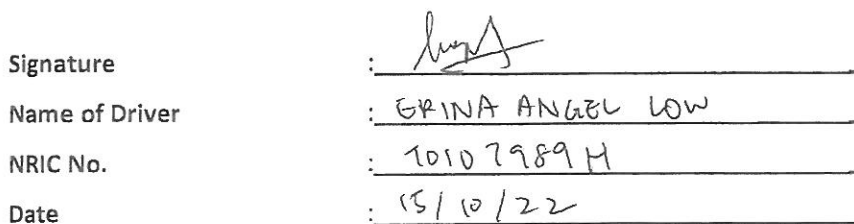 Signature :
Name of Driver : ERINA ANGEL LOW
NRIC No. : T0107989H
Date : 15/10/22